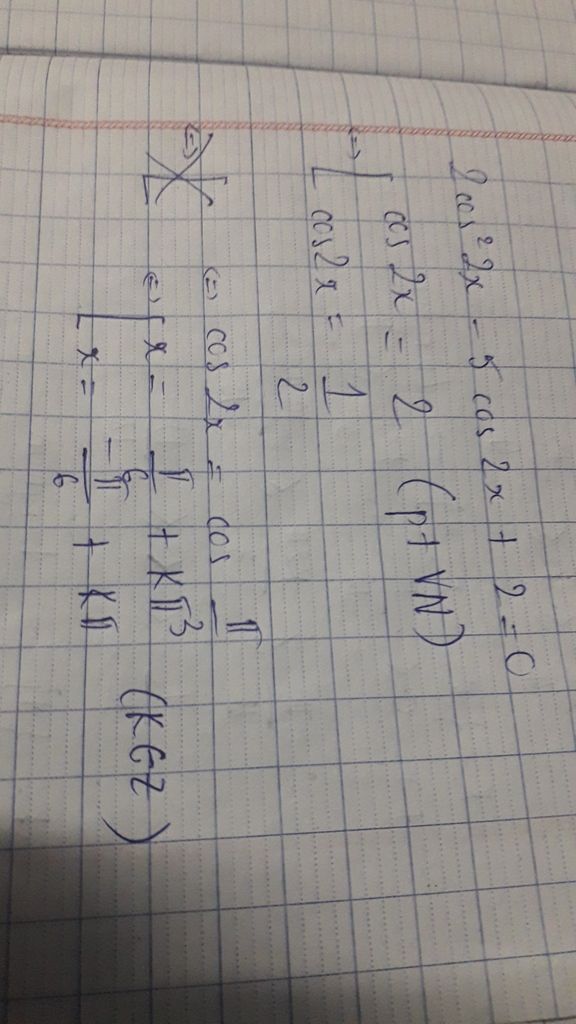 2cos² 2x - 5 cos 2x + 2 = 0
⇔ [ cos 2x = 2 (pt VN)
[ cos2x = 1/2
⇔ cos 2x = cos π/3
⇔ [ x = π/6 + Kπ
[ x = -π/6 + Kπ (K∈Z)